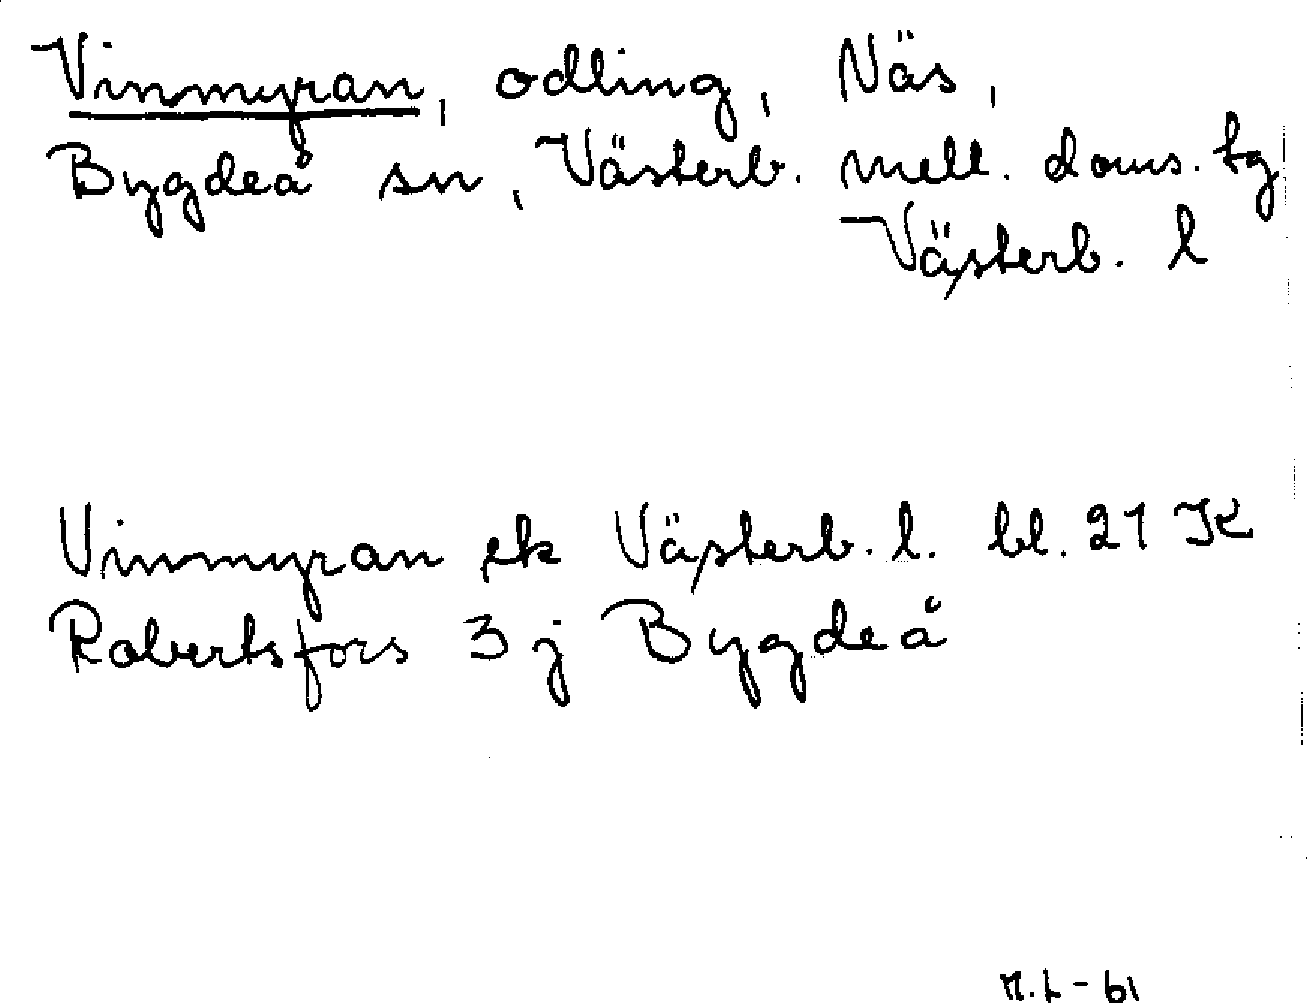 Vinmyran, odling, Näs,
Bygdeå sn, Västerb. mell. doms. tg
Västerb. l
Vinmyran ek Västerb. l. bl. 21 JK
Robertsfors 3 j Bygdeå